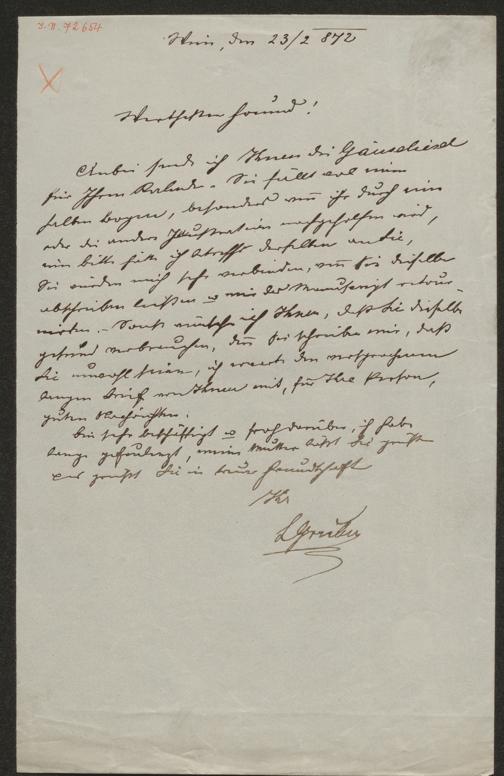 I.N. 72654
Wien, den 23/2 872
Werthester Freund!
Anbei sende ich Ihnen die Gänseliesel
für Ihren Kalender. Sie füllt wol einen
halben Bogen, besonders wenn ihr durch eine
oder die andere Illustration nachgeholfen wird,
eine bitte ich betreffs derselben an Sie,
Sie würden mich sehr verbinden, wenn Sie dieselbe
abschreiben ließen u mir das Manuscript retour-
nirten. – Sonst wünsche ich Ihnen, daß Sie dieselbe
gesund verbrauchen, denn Sie schreiben mir, daß
Sie unwohl seien, ich erwarte den versprochenen
langen Brief von Ihnen mit, für Ihre Person,
guten Nachrichten.
Bin sehr beschäftigt u froh darüber, ich habe
lange gefaulenzt, meine Mutter läßt Sie grüßen
es grüßt Sie in treuer Freundschaft
Ihr
LGruber